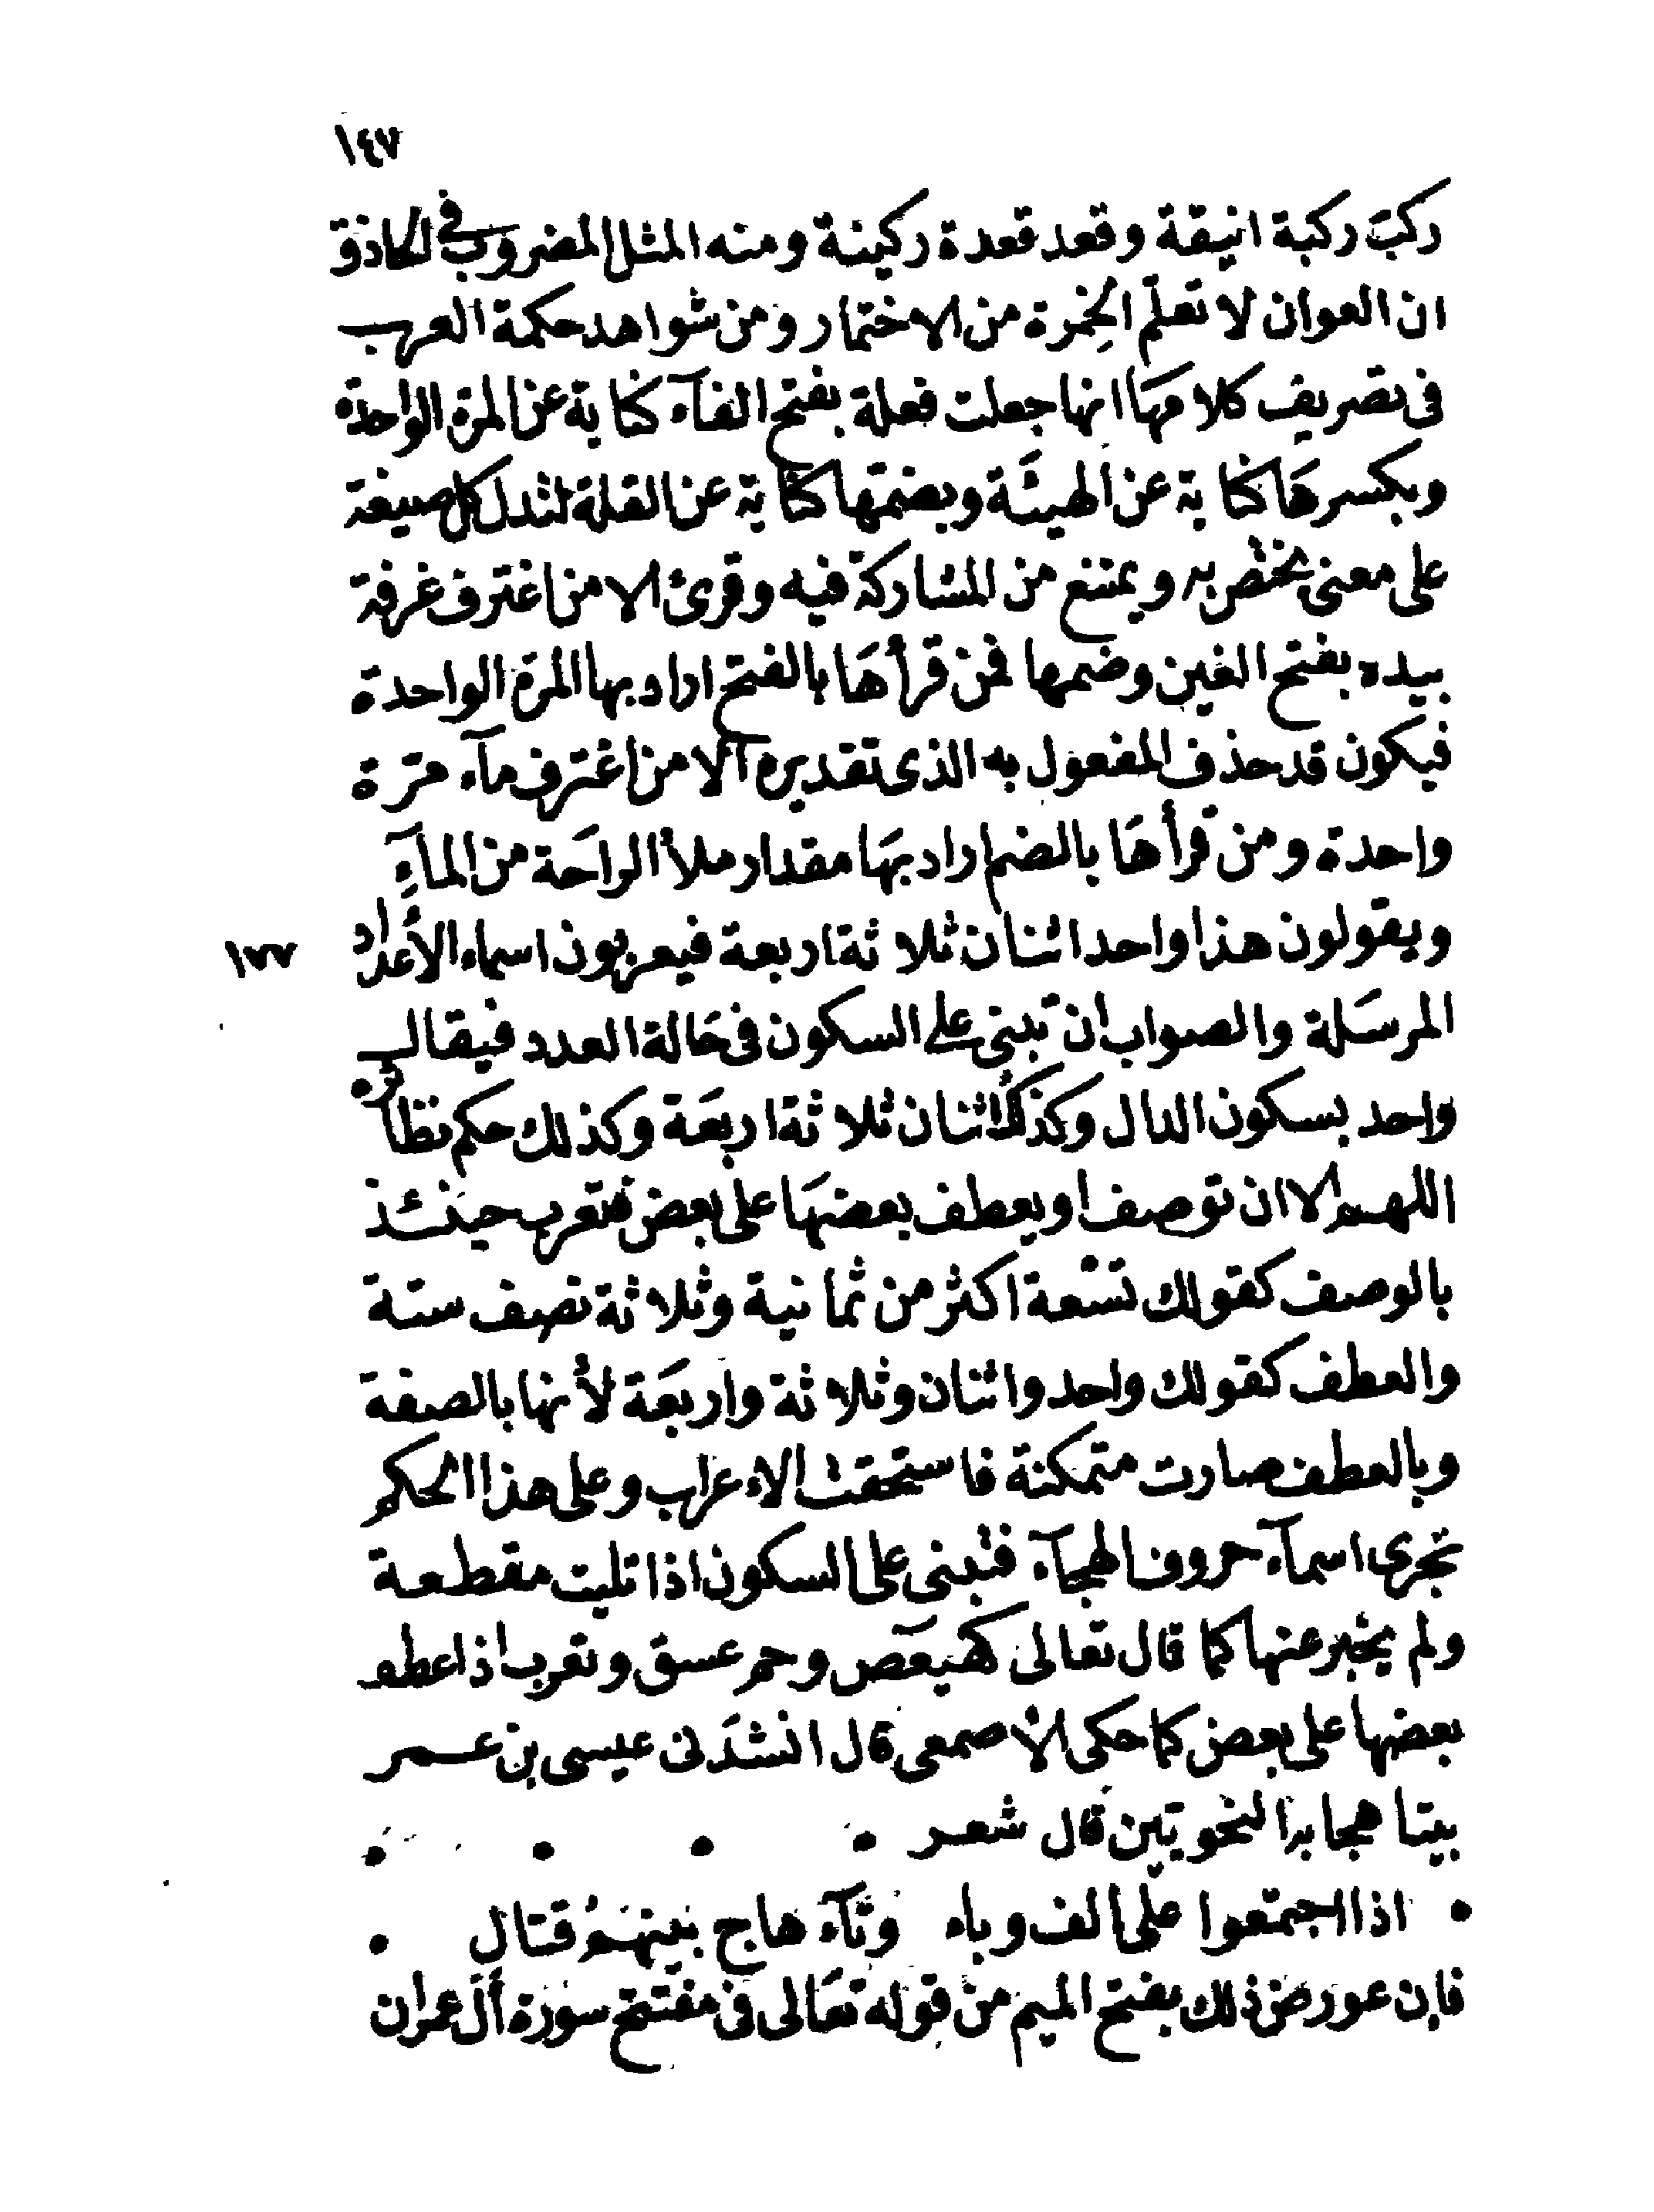 ١٤٧
ركب ركبة انيقة وقعد قعدة ركينة ومنه المثل المضروب فى الحاذق
ان العوان لا تعلّم الخِمرة من الاختمار ومن شواهد حكمة العرب
فى تصريف كلامهَا انها جعلت فعلة بفتح الفآء كناية عن المرة الواحدة
وبكسرهَا كناية عن الهيئَة وبضمّها كناية عن القلة لتدل كل صيغة
على معنى تختص به ويمتنع من المشاركة فيه وقرئ الا من اغترف غرفة
بيده بفتح الغين وضمها فمن قرأهَا بالفتح اراد بها المرّة الواحدة
فيكون قد حذف المفعول به الذى تقديره الا من اغترف مآء مرّة
واحدة ومن قرأهَا بالضم اراد بهَا مقدار ملأ الراحَة من المآءِ
ويقولون هذا واحد اثنان ثلاثة اربعة فيعربون اسماء الأعداد
١٧٧
المرسَلة والصواب ان تبنى على السكون فى حَالة العدد فيقال
واحد بسكون الدال وكذلك اثنان ثلاثة اربعَة وكذلك حكم نظائره
اللهم الا ان توصف او يعطف بعضهَا على بعض فتعرب حينئذ
بالوصف كقولك تسْعة اكثر من ثمانية وثلاثة نصف ستة
والعطف كقولك واحد واثنان وثلاثة واربعَة لأنها بالصفة
وبالعطف صارت متمكنة فاستحقت الاعراب وعلى هذا الحكم
تجرى اسمآء حروف الهجآء فتبنى على السكون اذا تليت مقطعة
ولم يخبر عنها كما قال تعالى كهيعص وحم عسق وتعرب اذا عطف
بعضها على بعض كما حكى الأصمعى قال انشدَنى عيسى بن عمر
بيتا هجا به النحويّين قال شعر
اذا اجتمعوا على الف وباء وتآء هاج بينهمُ قتال
فإن عورض ذلك بفتح الميم من قوله تعَالى فى مفتتح سورة آل عمران